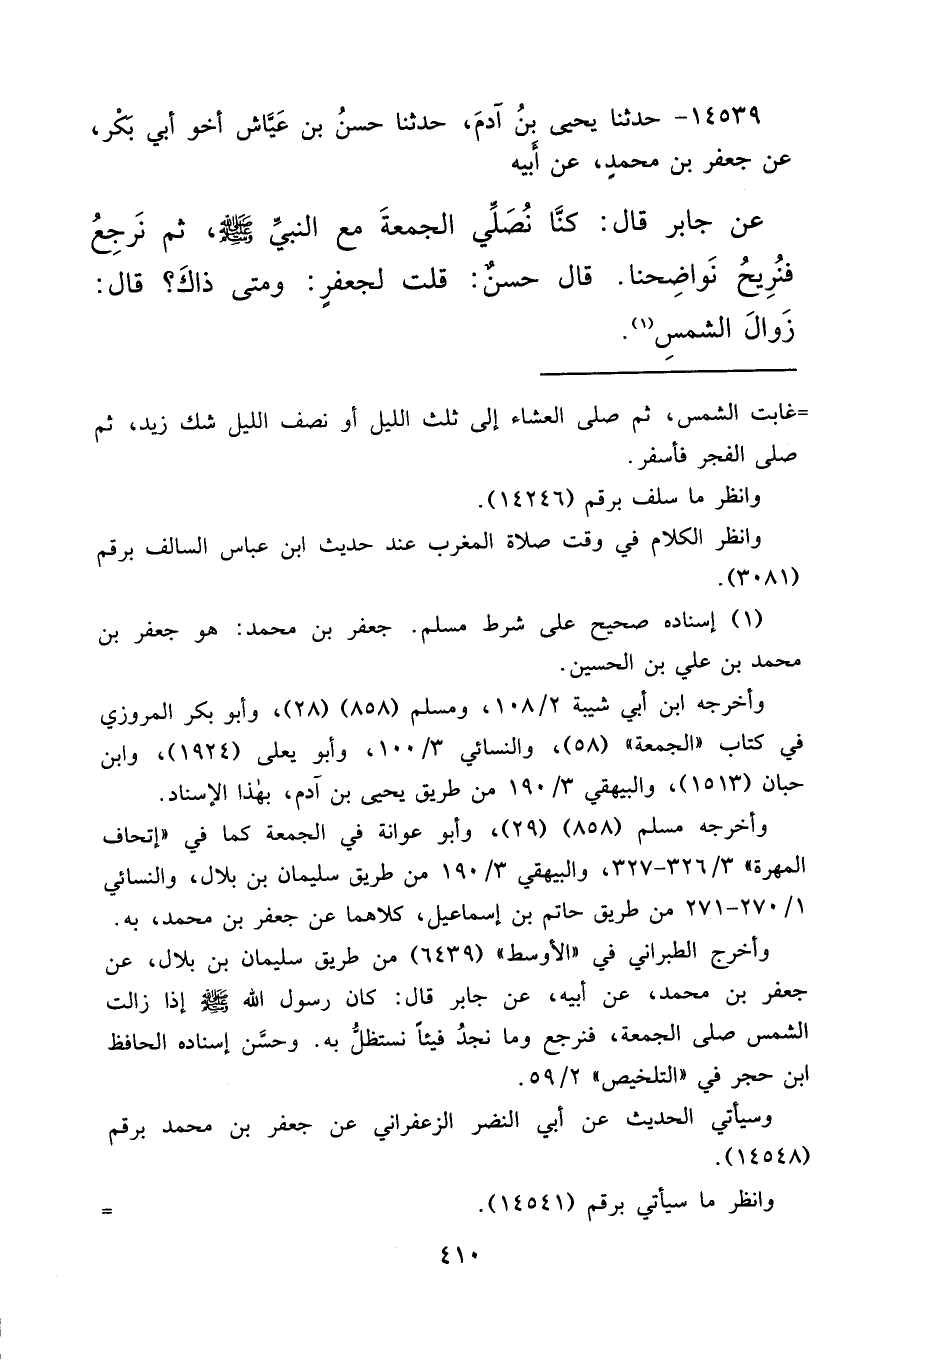 ١٤٥٣٩- حدثنا يحيى بنُ آدمَ، حدثنا حسنُ بن عَيَّاش أخو أبي بَكْر،
عن جعفر بن محمدٍ، عن أَبيه
عن جابر قال: كنَّا نُصَلِّي الجمعةَ مع النبيِّ ﷺ، ثم نَرجِعُ
فنُرِيحُ نَواضِحنا. قال حسنٌ: قلت لجعفرٍ: ومتى ذاكَ؟ قال:
زَوالَ الشمسِ(١).
=غابت الشمس، ثم صلى العشاء إلى ثلث الليل أو نصف الليل شك زيد، ثم
صلى الفجر فأسفر.
وانظر ما سلف برقم (١٤٢٤٦).
وانظر الكلام في وقت صلاة المغرب عند حديث ابن عباس السالف برقم
(٣٠٨١).
(١) إسناده صحيح على شرط مسلم. جعفر بن محمد: هو جعفر بن
محمد بن علي بن الحسين.
وأخرجه ابن أبي شيبة ١٠٨/٢، ومسلم (٨٥٨) (٢٨)، وأبو بكر المروزي
في كتاب «الجمعة» (٥٨)، والنسائي ١٠٠/٣، وأبو يعلى (١٩٢٤)، وابن
حبان (١٥١٣)، والبيهقي ١٩٠/٣ من طريق يحيى بن آدم، بهٰذا الإسناد.
وأخرجه مسلم (٨٥٨) (٢٩)، وأبو عوانة في الجمعة كما في «إتحاف
المهرة» ٣٢٦/٣-٣٢٧، والبيهقي ١٩٠/٣ من طريق سليمان بن بلال، والنسائي
٢٧٠/١-٢٧١ من طريق حاتم بن إسماعيل، كلاهما عن جعفر بن محمد، به.
وأخرج الطبراني في «الأوسط» (٦٤٣٩) من طريق سليمان بن بلال، عن
جعفر بن محمد، عن أبيه، عن جابر قال: كان رسول الله ﷺ إذا زالت
الشمس صلى الجمعة، فنرجع وما نجدُ فيئاً نستظلُّ به. وحسَّن إسناده الحافظ
ابن حجر في «التلخيص» ٥٩/٢.
وسيأتي الحديث عن أبي النضر الزعفراني عن جعفر بن محمد برقم
(١٤٥٤٨).
وانظر ما سيأتي برقم (١٤٥٤١). =
٤١٠